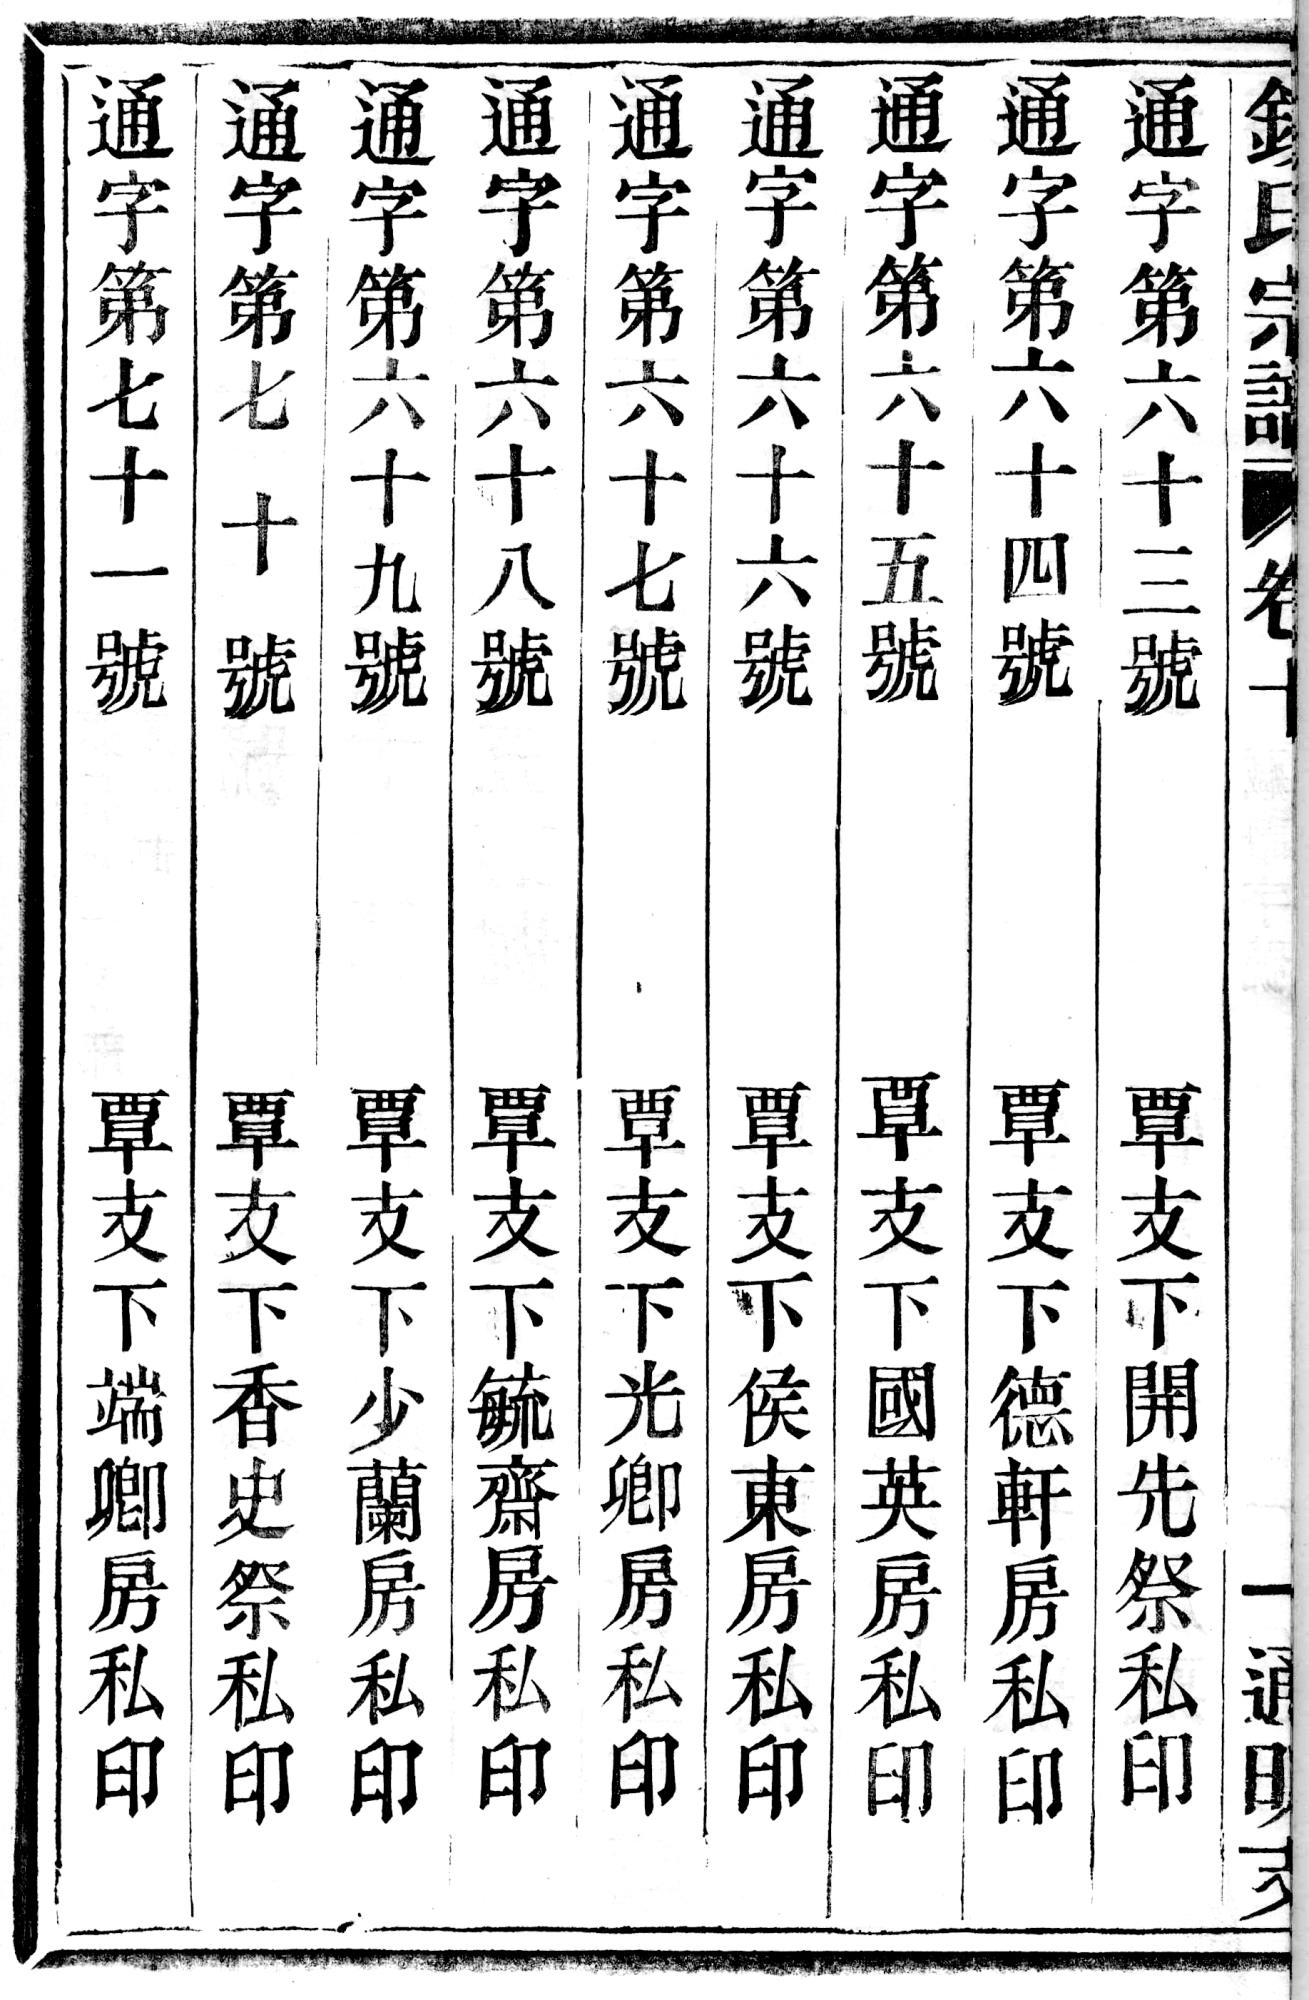 氏宗譜 卷十 一 通明支
通字第六十三號 覃支下開先祭私印
通字第六十四號 覃支下德軒房私印
通字第六十五號 覃支下國英房私印
通字第六十六號 覃支下侯東房私印
通字第六十七號 覃支下光卿房私印
通字第六十八號 覃支下毓齋房私印
通字第六十九號 覃支下少蘭房私印
通字第七十號 覃支下香史祭私印
通字第七十一號 覃支下端卿房私印